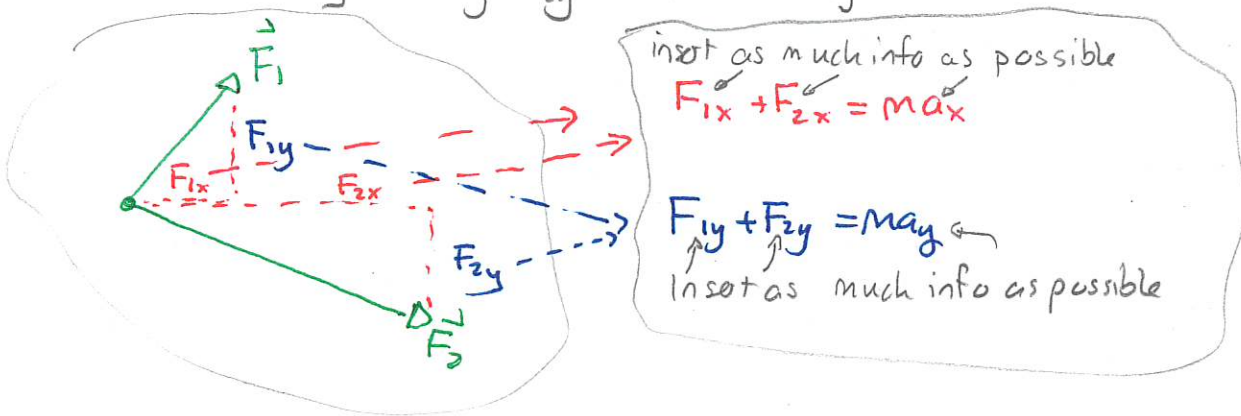 F₁
F₁y
F₁x
F₂x
F₂y
F₂
insert as much info as possible
F₁x + F₂x = max
F₁y + F₂y = may
Insert as much info as possible